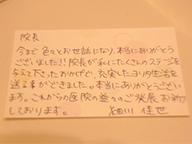 院長
今まで色々とお世話になり、本当にありがとう
ございました!! 院長が私にたくさんのステージを
与えて下さったおかげで、充実したヨリタ生活を
送る事ができました。本当にありがとうござい
ます。これからの医院の益々のご発展お祈り
しております。 細川 佳世